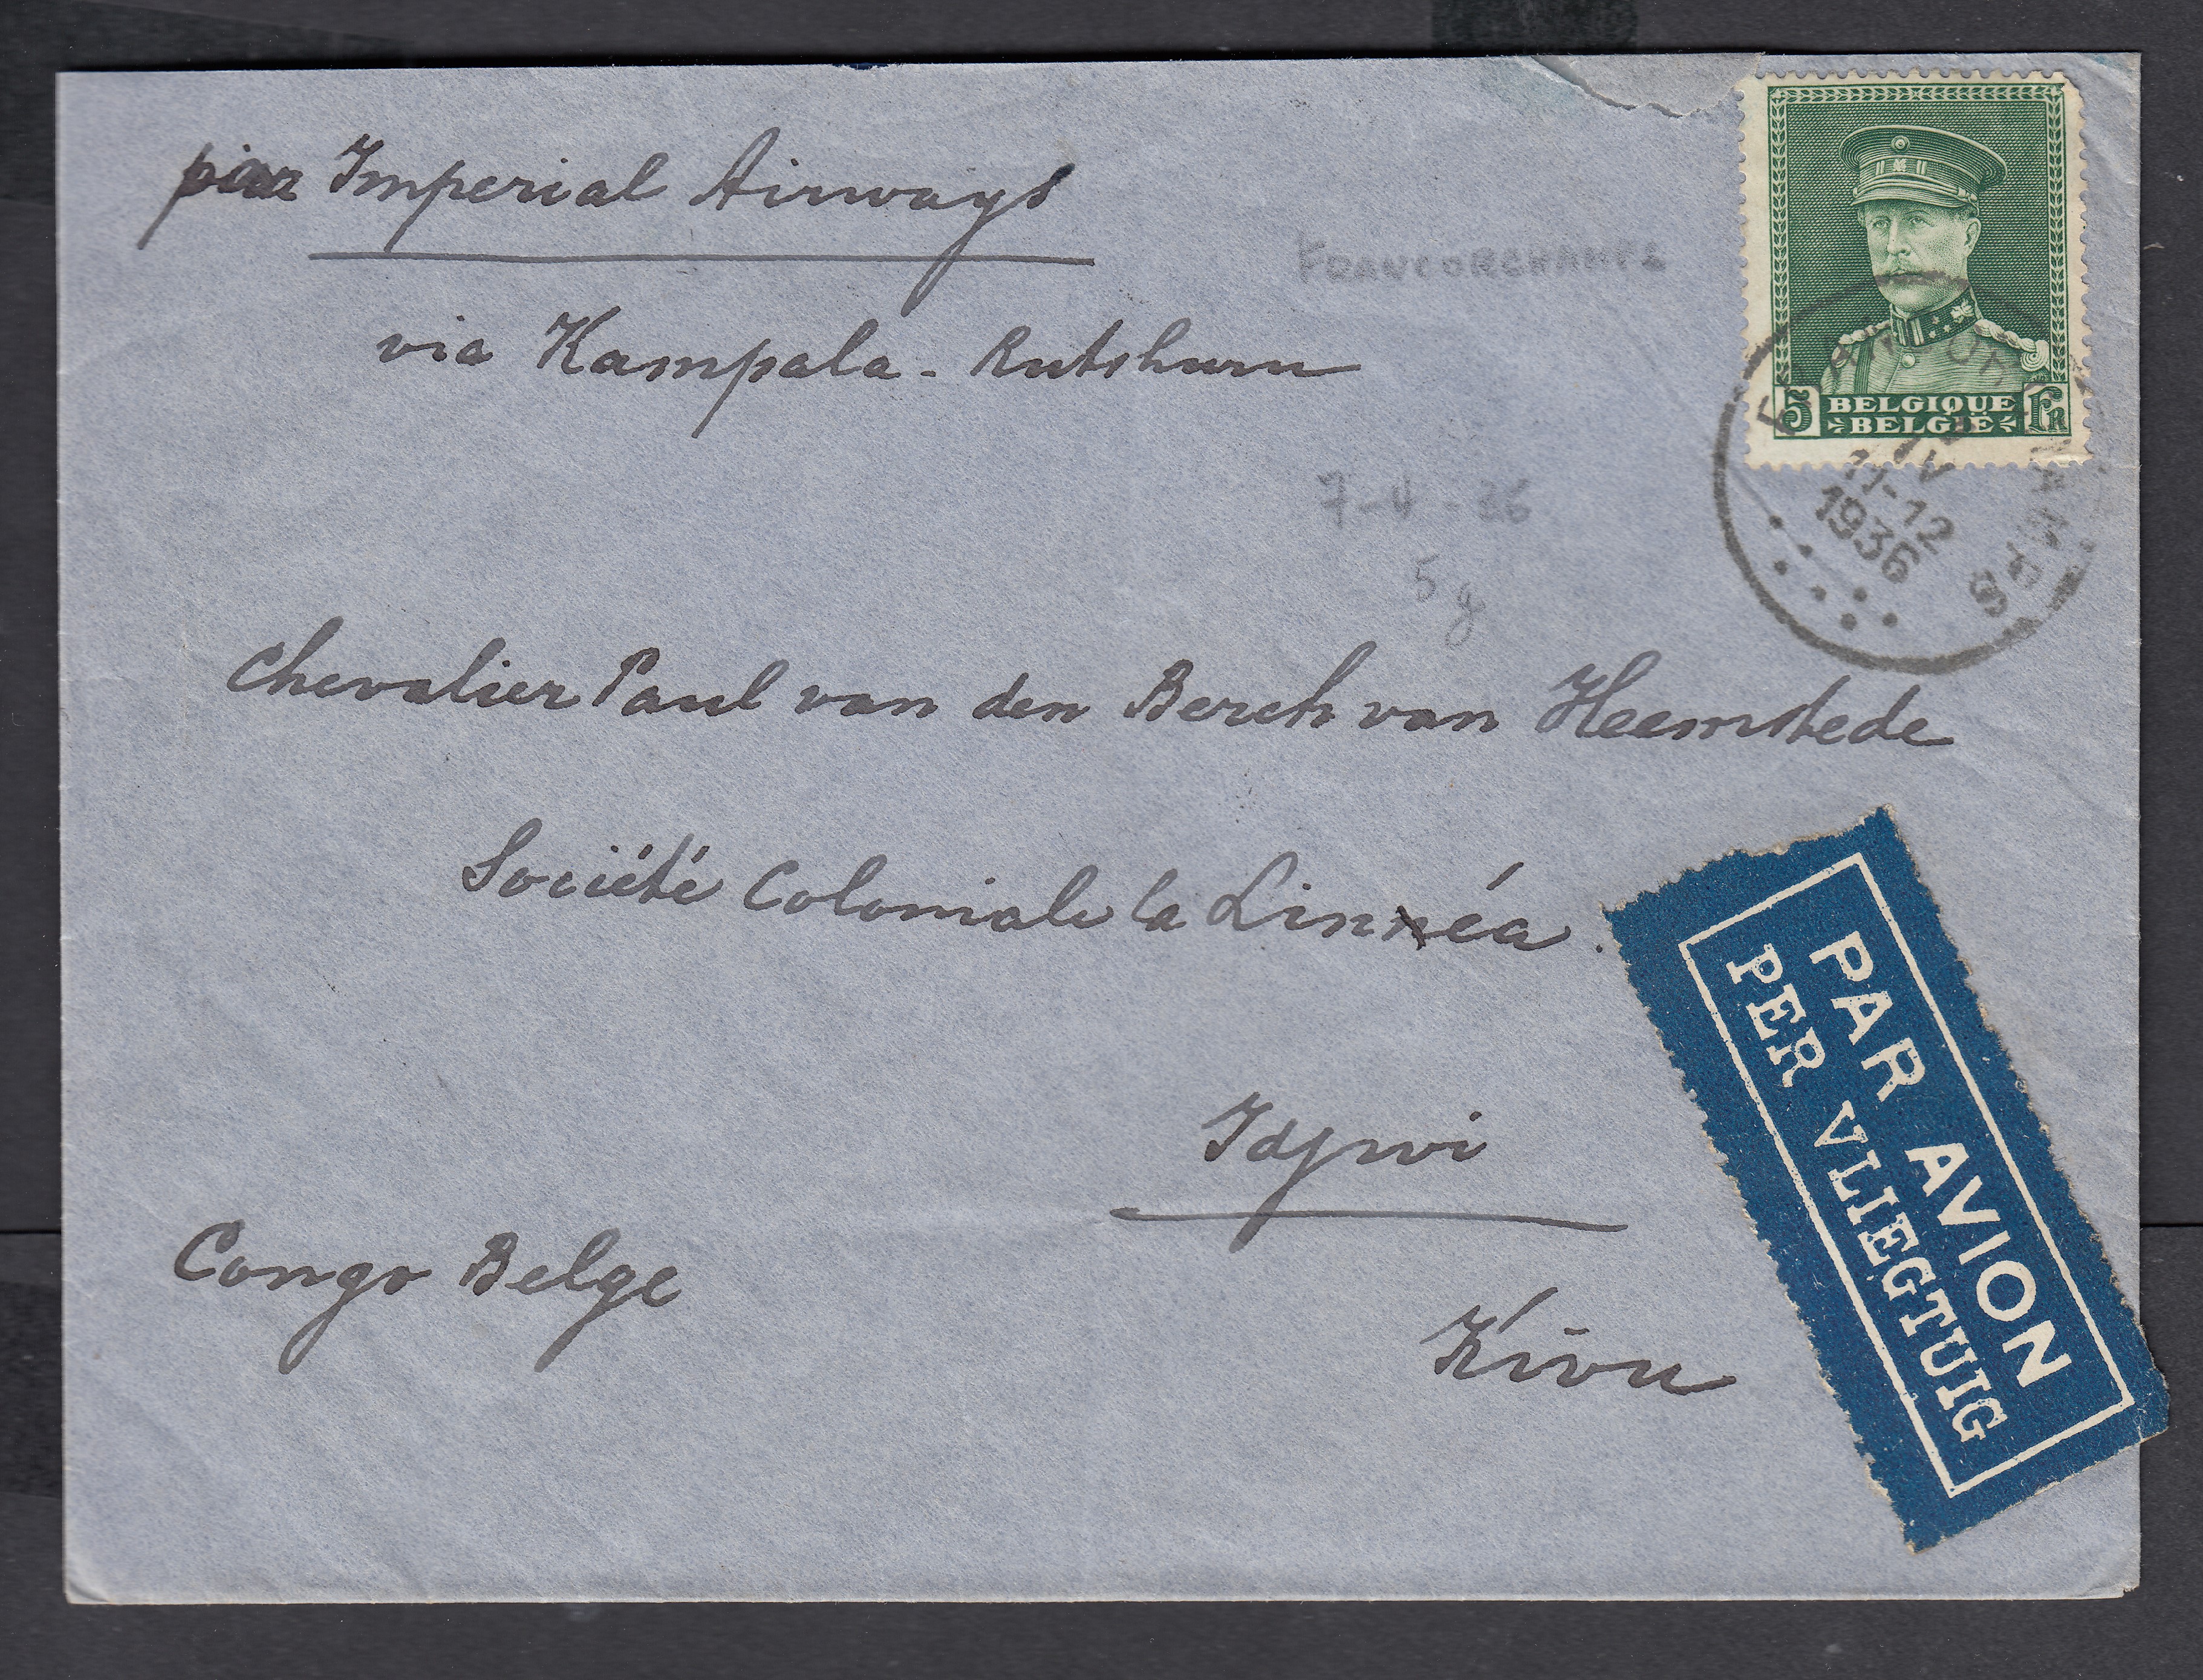 par Imperial Airways
via Kampala - Rutshuru
FRANCORCHAMPS
7-4-36
5 g
5 BELGIQUE Fr
BELGIË
FRANCORCHAMPS
IV
11-12
1936
Chevalier Paul van den Berch van Heemstede
Société Coloniale la Linnéa.
Idjwi
Congo Belge
Kivu
PAR AVION
PER VLIEGTUIG